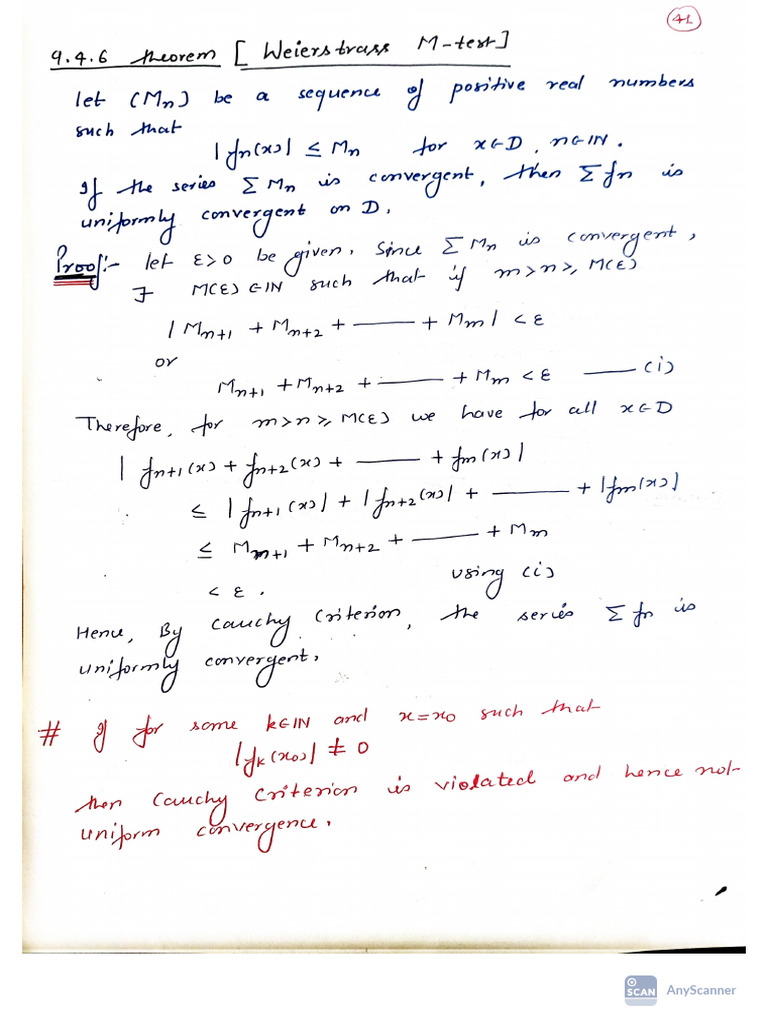 41
9.4.6 theorem [ Weierstrass M-test ]
let (Mn) be a sequence of positive real numbers
such that
|fn(x)| ≤ Mn for x∈D, n∈IN.
If the series ΣMn is convergent, then Σfn is
uniformly convergent on D.
Proof:- let ε>0 be given. Since ΣMn is convergent,
∃ M(ε)∈IN such that if m>n≥M(ε)
|Mn+1 + Mn+2 + —— + Mm| < ε
or
Mn+1 + Mn+2 + —— + Mm < ε —— (i)
Therefore, for m>n≥M(ε) we have for all x∈D
|fn+1(x) + fn+2(x) + —— + fm(x)|
≤ |fn+1(x)| + |fn+2(x)| + —— + |fm(x)|
≤ Mn+1 + Mn+2 + —— + Mm
< ε. using (i)
Hence, By Cauchy Criterion, the series Σfn is
uniformly convergent.
# If for some k∈IN and x=x0 such that
|fk(x0)| ≠ 0
then Cauchy Criterion is violated and hence not
uniform convergence.
SCAN AnyScanner